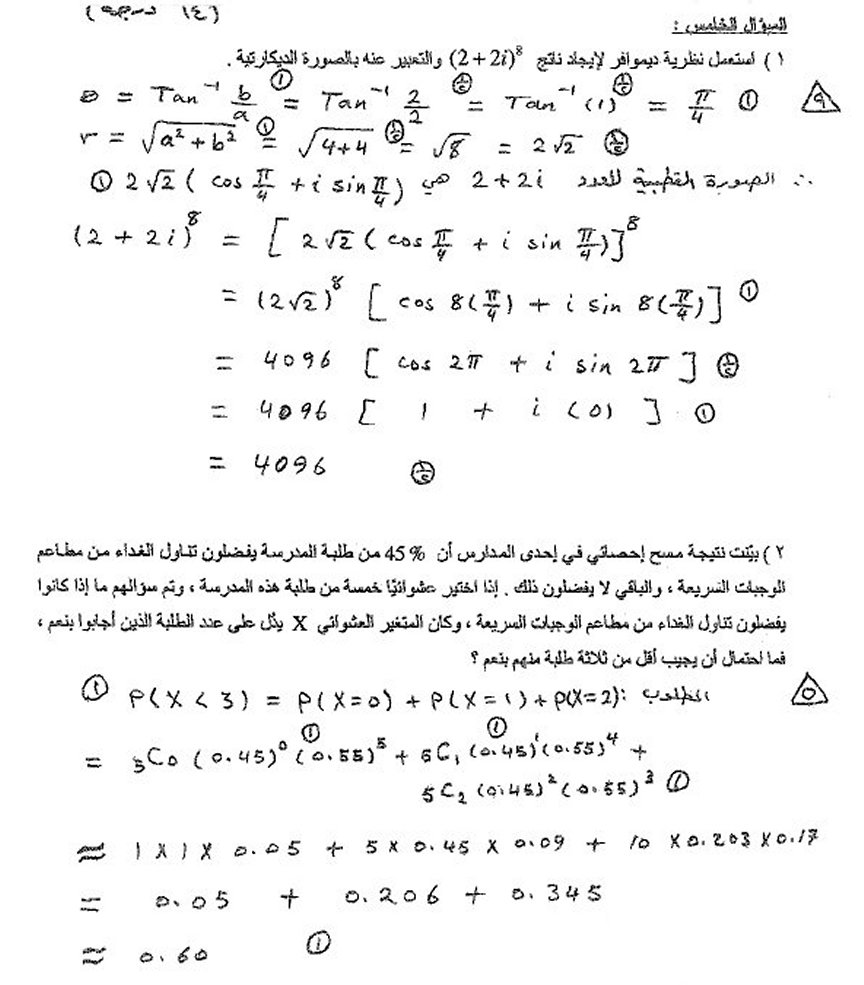 (١٤ درجة)
السؤال الخامس :
١ ) استعمل نظرية ديموافر لإيجاد ناتج (2 + 2i)^8 والتعبير عنه بالصورة الديكارتية .
θ = Tan⁻¹ b/a ① = Tan⁻¹ 2/2 (½) = Tan⁻¹ (1) (½) = π/4 ① ٩
r = √(a² + b²) ① = √(4+4) (½) = √8 = 2√2 (½)
∴ الصورة القطبية للعدد 2 + 2i هي 2√2 ( cos π/4 + i sin π/4 ) ①
(2 + 2i)^8 = [ 2√2 ( cos π/4 + i sin π/4 ) ]^8
= (2√2)^8 [ cos 8(π/4) + i sin 8(π/4) ] ①
= 4096 [ cos 2π + i sin 2π ] (½)
= 4096 [ 1 + i (0) ] ①
= 4096 (½)
٢ ) بيّنت نتيجة مسح إحصائي في إحدى المدارس أن 45% من طلبة المدرسة يفضلون تناول الغداء من مطاعم
الوجبات السريعة ، والباقي لا يفضلون ذلك . إذا اختير عشوائيًا خمسة من طلبة هذه المدرسة ، وتم سؤالهم ما إذا كانوا
يفضلون تناول الغداء من مطاعم الوجبات السريعة ، وكان المتغير العشوائي X يدُل على عدد الطلبة الذين أجابوا بنعم ،
فما احتمال أن يجيب أقل من ثلاثة طلبة منهم بنعم ؟
المطلوب: P(X < 3) = P(X=0) + P(X=1) + P(X=2) ① ٥
= 5C0 (0.45)^0 (0.55)^5 ① + 5C1 (0.45)^1 (0.55)^4 ① +
5C2 (0.45)^2 (0.55)^3 ①
≈ 1 × 1 × 0.05 + 5 × 0.45 × 0.09 + 10 × 0.203 × 0.17
= 0.05 + 0.206 + 0.345
≈ 0.60 ①